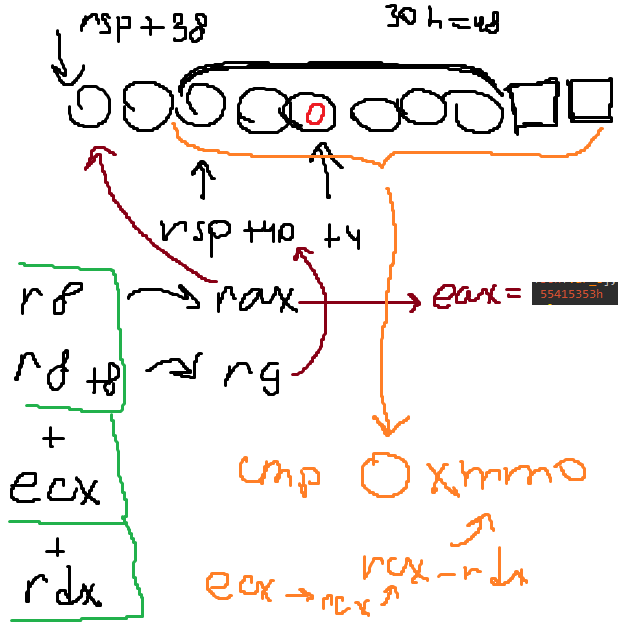 rsp + 38
30h = 48
0
rsp + 40 + 4
r8 rax eax = 55415353h
r8 + 8 r9
+
ecx
cmp xmm0
+
rdx
rcx - rdx
ecx → rcx